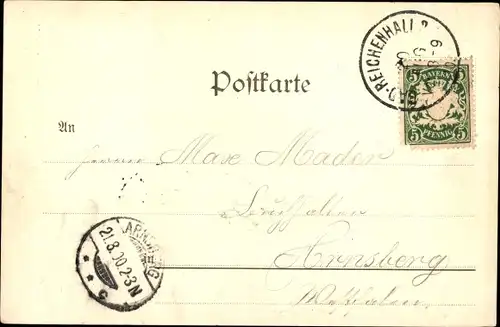 BAD-REICHENHALL 2
BAYERN
5 5
PFENNIG
Postkarte
An
Herrn Max Mader
Arnsberg
Westfalen
ARNSBERG
21.8.00.2-3N
* 5 *